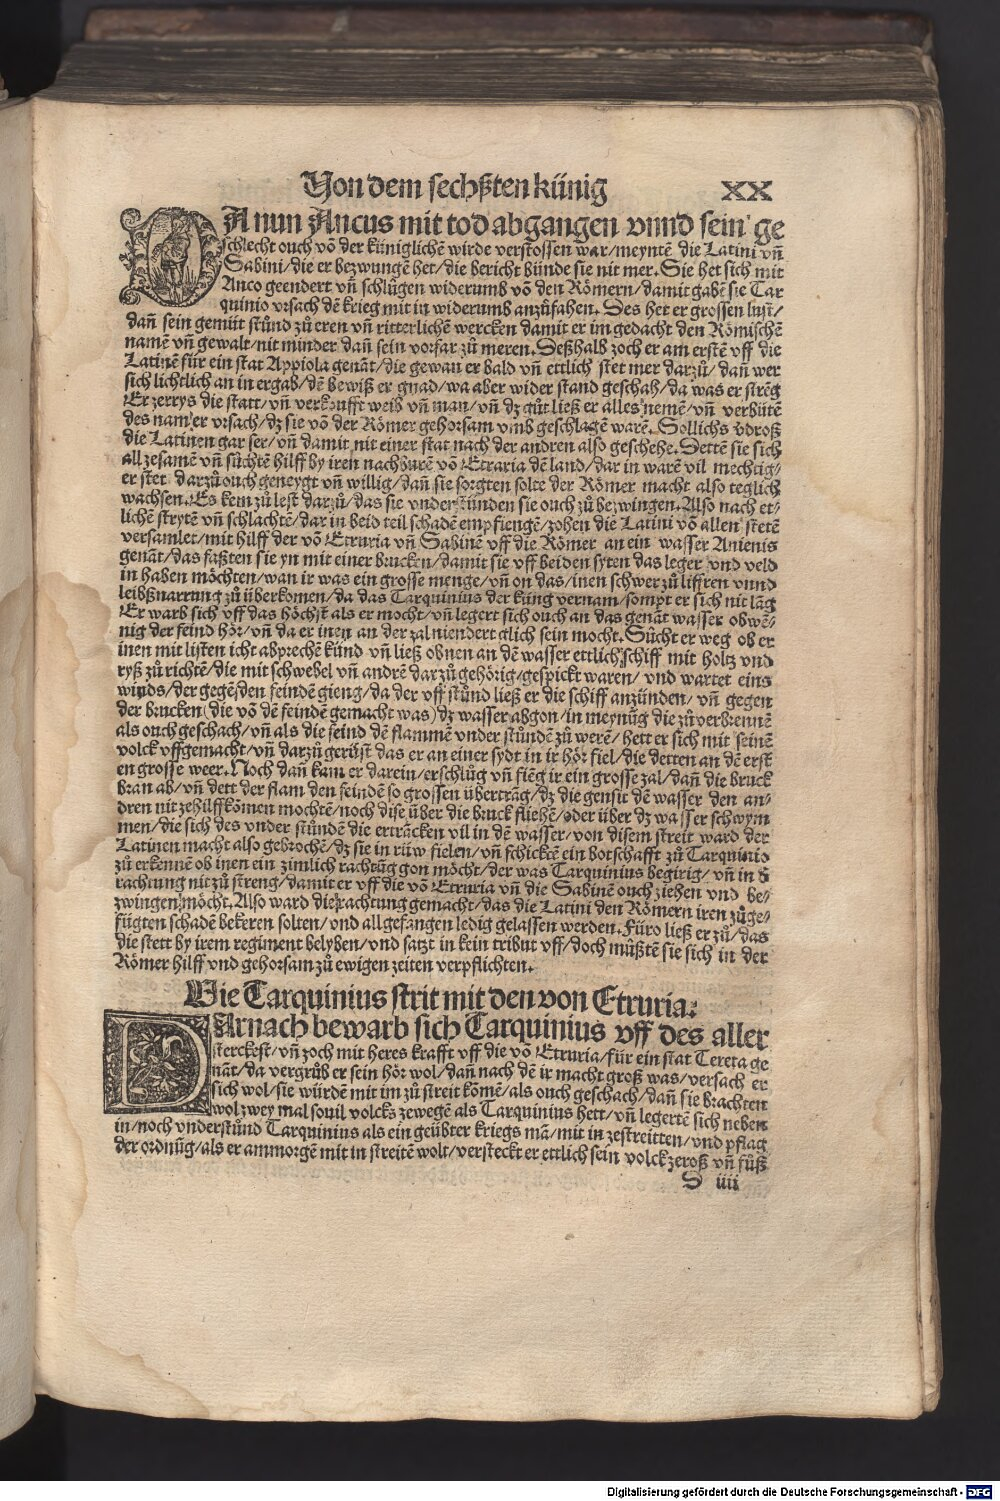 Von dem sechßten künig XX
DA nun Ancus mit tod abgangen vnnd sein ge
schlecht ouch võ der küniglichẽ wirde verstossen war/meyntẽ die Latini vñ
Sabini/die er bezwungẽ het/die bericht bünde sie nit mer. Sie het sich mit
Anco geendert vñ schlůgen widerumb võ den Römern/damit gabẽ sie Tar
quinio vrsach dẽ krieg mit in widerumb anzůfahen. Des het er grossen lust/
dañ sein gemüt stůnd zů eren vñ ritterlichẽ wercken damit er im gedacht den Römischẽ
namẽ vñ gewalt/nit minder dañ sein vorfar zů meren. Deßhalb zoch er am erstẽ vff die
Latinẽ für ein stat Appiola genãt/die gewan er bald vñ ettlich stet mer darzů/dañ wer
sich lichtlich an in ergab/dẽ bewiß er gnad/wa aber wider stand geschah/da was er strẽg
Er zerrys die statt/vñ verkoufft weib vñ man/vñ dz gůt ließ er alles nemẽ/vñ verbütẽ
des nam er vrsach/dz sie võ der Römer gehorsam vmb geschlagẽ warẽ. Sollichs vdroß
die Latinen gar ser/vñ damit nit einer stat nach der andren also geschehe. Dettẽ sie sich
all zesamẽ vñ sůchtẽ hilff by iren nachburẽ võ Etraria dẽ land/dar in warẽ vil mechtig-
er stet darzů ouch geneygt vñ willig/dañ sie sorgten solte der Römer macht also teglich
wachsen. Es kem zů lest darzů/das sie vnderstůnden sie ouch zů bezwingen. Also nach et-
lichẽ strytẽ vñ schlachtẽ/dar in beid teil schadẽ empfiengẽ/zohen die Latini võ allen stetẽ
versamlet/mit hilff der võ Etruria vñ Sabinẽ vff die Römer an ein wasser Anienis
genãt/das faßten sie yn mit einer brucken/damit sie vff beiden syten das leger vnd veld
in haben möchten/wan ir was ein grosse menge/vñ on das/inen schwer zů liffren vnnd
leibßnarrung zů überkomen/da das Tarquinius der küng vernam/sompt er sich nit lãg
Er warb sich vff das höchst als er mocht/vñ legert sich ouch an das genãt wasser obwẽ-
nig der feind hör/vñ da er inen an der zal niendert glich sein mocht. Sůcht er weg ob er
inen mit listen icht abprechẽ künd vñ ließ obnen an dẽ wasser ettlich schiff mit holtz vnd
ryß zů richtẽ/die mit schwebel vñ andrẽ darzů gehörig/gespickt waren/vnd wartet eins
winds/der gegẽ den feindẽ gieng/da der vff stůnd ließ er die schiff anzünden/vñ gegen
der brucken (die võ dẽ feindẽ gemacht was) dz wasser abgon/in meynũg die zů verbrennẽ
als ouch geschach/vñ als die feind dẽ flammẽ vnder stůndẽ zů werẽ/hett er sich mit seinẽ
volck vffgemacht/vñ darzů gerüst das er an einer sydt in ir hör fiel/die detten an dẽ erst
en grosse weer. Noch dañ kam er darein/erschlůg vñ fiẽg ir ein grosse zal/dañ die bruck
bran ab/vñ dett der flam den feindẽ so grossen übertrãg/dz die gensit dẽ wasser den an-
dren nit zehilff kõmen mochtẽ/noch dise über die bruck fliehẽ/oder über dz wasser schwym
men/die sich des vnder stůndẽ die erträcken vil in dẽ wasser/von disem streit ward der
Latinen macht also gebrochẽ/dz sie in rüw fielen/vñ schicktẽ ein botschafft zů Tarquinio
zů erkennẽ ob inen ein zimlich rachtũg gon möcht/der was Tarquinius begirig/vñ in d
rachtung nit zů streng/damit er vff die võ Etruria vñ die Sabinẽ ouch ziehen vnd be-
zwingen möcht. Also ward die rachtung gemacht/das die Latini den Römern iren zůge-
fügten schadẽ bekeren solten/vnd all gefangen ledig gelassen werden. Füro ließ er zů/das
die stett by irem regiment belyben/vnd satzt in kein tribut vff/doch müßtẽ sie sich in der
Römer hilff vnd gehorsam zů ewigen zeiten verpflichten.
Wie Tarquinius strit mit den von Etruria:
DArnach bewarb sich Tarquinius vff des aller
sterckest/vñ zoch mit heres krafft vff die võ Etruria/für ein stat Cereta ge
nãt/da vergrůb er sein hör wol/dañ nach dẽ ir macht groß was/versach er
sich wol/sie würdẽ mit im zů streit kõmẽ/als ouch geschach/dañ sie brachten
wol zwey mal souil volcks zewegẽ als Tarquinius hett/vñ legertẽ sich neben
in/noch vnderstůnd Tarquinius als ein geübter kriegs mã/mit in zestreitten/vnd pflag
der ordnũg/als er ammorgẽ mit in streitẽ wolt/versteckt er ettlich sein volck zeroß vñ fůß
D iiii
Digitalisierung gefördert durch die Deutsche Forschungsgemeinschaft - DFG